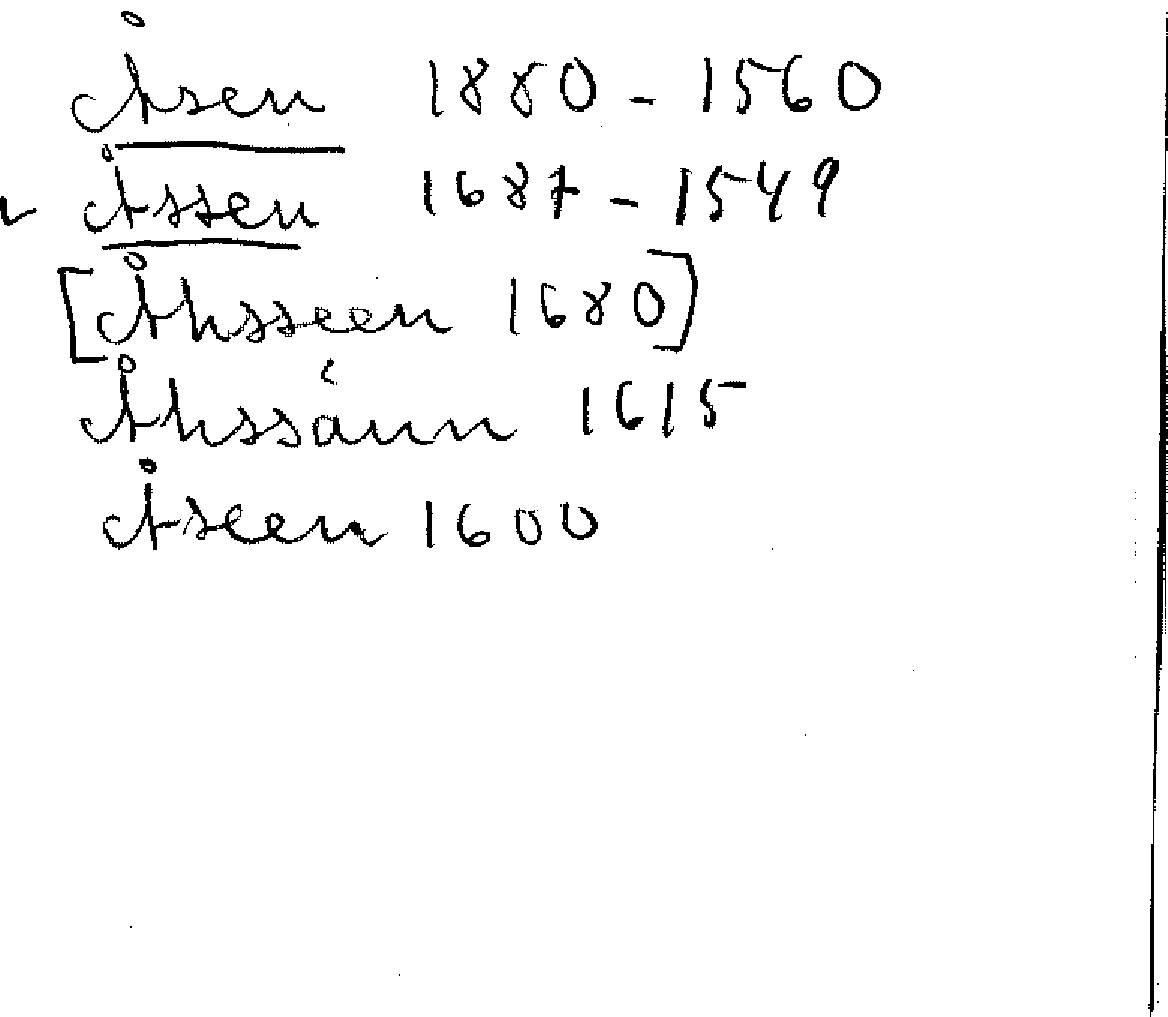 Åsen 1880 - 1560
Åssen 1687 - 1549
[Åhsseen 1680]
Åhssånn 1615
Åseen 1600